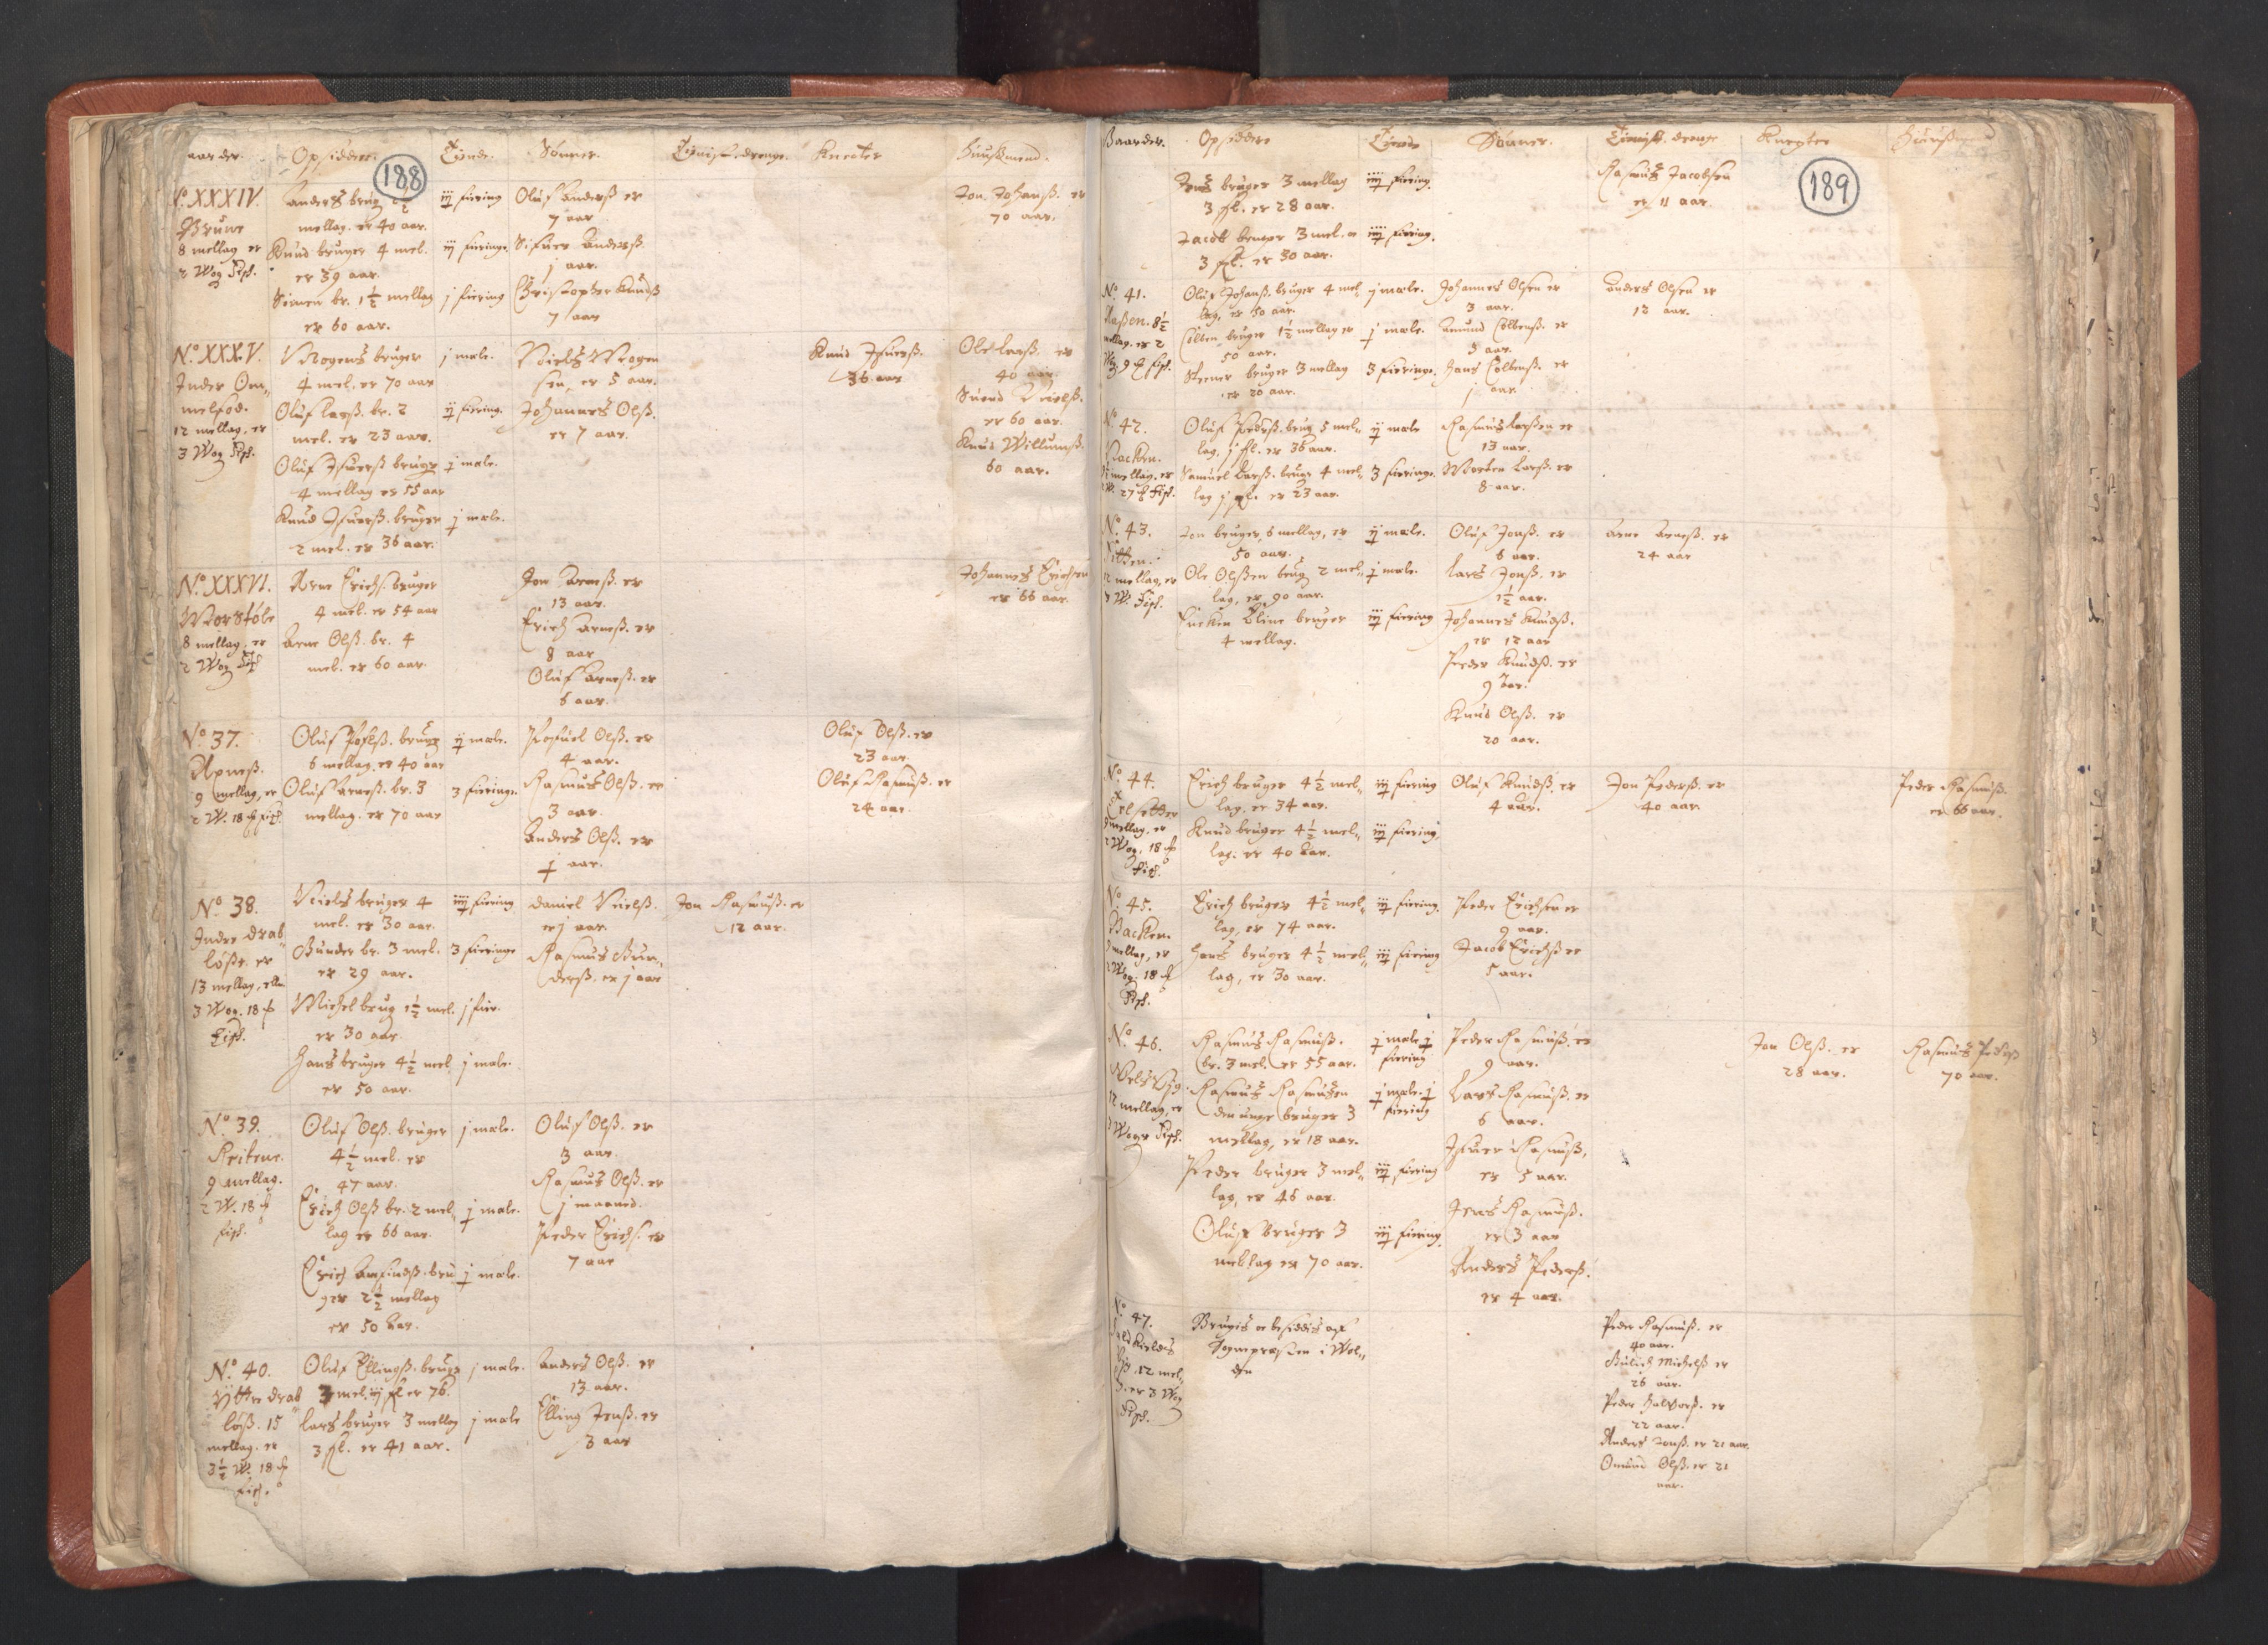 188
aarder. Opsidder. Tiende. Sønner. Tienist.drenge. Knecter Huusmend.
No. XXXIV.
Brune
8 mellag er
2 Wog Fisk.
Anders brug 2½
mellag. er 40 aar.
Knud bruger 4 mel.
er 39 aar.
Simen br. 1½ mellag
er 60 aar.
ij fiering
iij fieringe
j fiering
Oluf Anderß. er
7 aar
Sifuer Anderß.
j aar.
Christopher Knudß
7 aar
Jon Johanß. er
70 aar.
No. XXXV.
Inder Om,,
melfod.
12 mellag, er
3 Wog Fisk.
Mogens bruger
4 mel. er 70 aar
Oluf Larß. br. 2
mel. er 23 aar.
Oluf Ifuerß. bruger
4 mellag er 55 aar
Knud Ifuerß. bruger
2 mel. er 36 aar.
j mæle.
ij fiering.
j mæle.
j mæle.
Niels Mogen
sen, er 5 aar.
Johannes Olß.
er 7 aar.
Knud Ifuerß.
36 aar
Ole Larß. er
40 aar.
Suend Nielß.
er 60 aar.
Knud Willumß.
60 aar.
No. XXXVI.
Morstøle
8 mellag, er
2 Wog Fisk
Arne Erichs. bruger
4 mel. er 54 aar
Arne Olß. br. 4
mel. er 60 aar.
Jon Arneß. er
13 aar.
Erich Arneß. er
8 aar
Oluf Arneß. er
6 aar.
Johannes Erichsen
er 66 aar.
No. 37.
9 mellag, er
2 W. 18 ℔ fisk.
Oluf Pofelß. brug
6 mellag. er 40 aar
Oluf Arneß. br. 3
mellag. er 70 aar
ij mæle.
3 fieringe.
Pofuel Olß. er
4 aar.
Rasmus Olß. er
3 aar.
Anders Olß. er
j aar.
Oluf Olß. er
23 aar.
Oluf Rasmuß. er
24 aar.
No. 38.
Indre Drab,,
løße. er
13 mellag, eller
3 Wog. 18 ℔
Fisk.
Niels bruger 4
mel. er 30 aar.
Gunder br. 3 mel.
er 29 aar.
Michel brug 1½ mel.
er 30 aar.
Hans bruger 4½ mel
er 50 aar.
iiij fiering
3 fieringe
j fier.
j mæle.
Daniel Nielß.
er j aar.
Rasmus Gun,,
derß. er j aar
Jon Rasmuß. er
12 aar.
No. 39.
Reitene.
9 mellag.
2 W. 18 ℔
fisk.
Oluf Olß. bruger
4½ mel. er
47 aar.
Erich Olß br. 2 mel,,
lag er 66 aar.
Erich Amfindß. bru
ger 2½ mellag
er 50 aar.
j mæle.
j mæle.
j mæle.
Oluf Olß. er
3 aar.
Rasmus Olß. er
j maaned.
Peder Erichs. er
7 aar
No. 40.
Yttre Drab
løß. 15
mellag. er
3½ W. 18 ℔
fisk.
Oluf Ellingß. brug
3 mel. iij fl er 76.
Lars bruger 3 mellag
3 fl. er 41 aar.
j mæle.
j mæle
Anders Olß. er
13 aar.
Elling Jenß. er
3 aar
189
Gaarder. Opsiddere Tiende Sønner. Tienist. drenge Knegter Huusm
Jens bruger 3 mellag
3 fl. er 28 aar.
Jacob bruger 3 mel. oc
3 fl. er 30 aar.
iiij fiering.
iiij fiering.
Rasmus Jacobsen
er 11 aar.
No. 41.
8½
mellag. er 2
W. 9 ℔ fisk.
Oluf Johanß. bruger 4 mel
lag, er 50 aar.
Colben bruger 1½ mellag er
50 aar.
Steener bruger 3 mellag
er 20 aar.
j mæle.
j mæle.
3 fieringe.
Johannes Olsen er
3 aar.
Amund Colbenß. er
3 aar.
Hans Colbenß. er
j aar
Anders Olsen er
12 aar.
No. 42.
Backen.
mellag, er
W. 27 ℔ fisk.
Oluf Pederß. brug 5 mel,,
lag, j fl. er 36 aar.
Samuel Larß. brug 4 mel,,
lag j fl. er 23 aar.
ij mæle
3 fieringe.
Rasmus Larßen er
13 aar.
Morten Larß. er
8 aar.
No. 43.
12 mellag, er
3 W. Fisk.
Jon bruger 6 mellag, er
50 aar.
Ole Olßen brug 2 mel,,
lag, er 90 aar.
Encken Eline bruger
4 mellag.
ij mæle.
j mæle.
iij fiering
Oluf Jonß. er
6 aar.
Lars Jonß. er
1½ aar.
Johannes Knudß.
er 12 aar
Peder Knudß. er
9 aar.
Knud Olß. er
20 aar.
Arne Arneß. er
24 aar
No. 44.
9 mellag, er
2 Wog, 18 ℔
Fisk.
Erich bruger 4½ mel,,
lag. er 34 aar.
Knud bruger 4½ mel,,
lag. er 40 aar.
iij fiering
iij fiering
Oluf Knudß. er
4 aar.
Jon Pederß. er
40 aar.
Peder Rasmuß.
er 66 aar.
No. 45.
Backen.
9 mellag, er
2 Wog. 18 ℔
Fisk.
Erich bruger 4½ mel,,
lag, er 74 aar.
Hans bruger 4½ mel,,
lag, er 30 aar.
iij fiering.
iij fiering
Peder Erichsen er
9 aar.
Jacob Erichß er
5 aar.
No. 46.
12 mellag, er
3 Woger Fisk.
Rasmus Rasmuß.
br. 3 mel. er 55 aar.
Rasmus Rasmußen
den unge bruger 3
mellag, er 18 aar.
Peder bruger 3 mel,,
lag, er 46 aar.
Oluf bruger 3
mellag er 70 aar.
j mæle j
fiering
j mæle. j
fiering
iij fiering
iij fiering.
Peder Rasmuß. er
9 aar.
Lars Rasmuß. er
6 aar.
Ifuer Rasmuß.
er 5 aar.
Jens Rasmuß.
er 3 aar
Anders Pederß.
er 4 aar.
Jon Olß. er
28 aar.
Rasmus Pederß
70 aar.
No. 47.
12 mel,,
er 3 Wog
Fisk.
Brugis oc besiddis af
Sognepresten i Wol,,
den
Peder Rasmuß. er
40 aar.
Gulich Michelß er
26 aar.
Peder Halvorß. er
22 aar.
Anders Jonß. er 21 aar.
Omund Olß. er 21
aar.